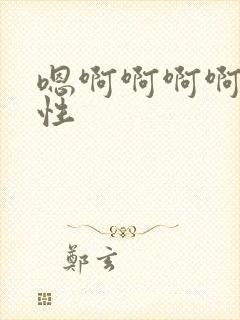 嗯啊啊啊啊
性
鄭玄